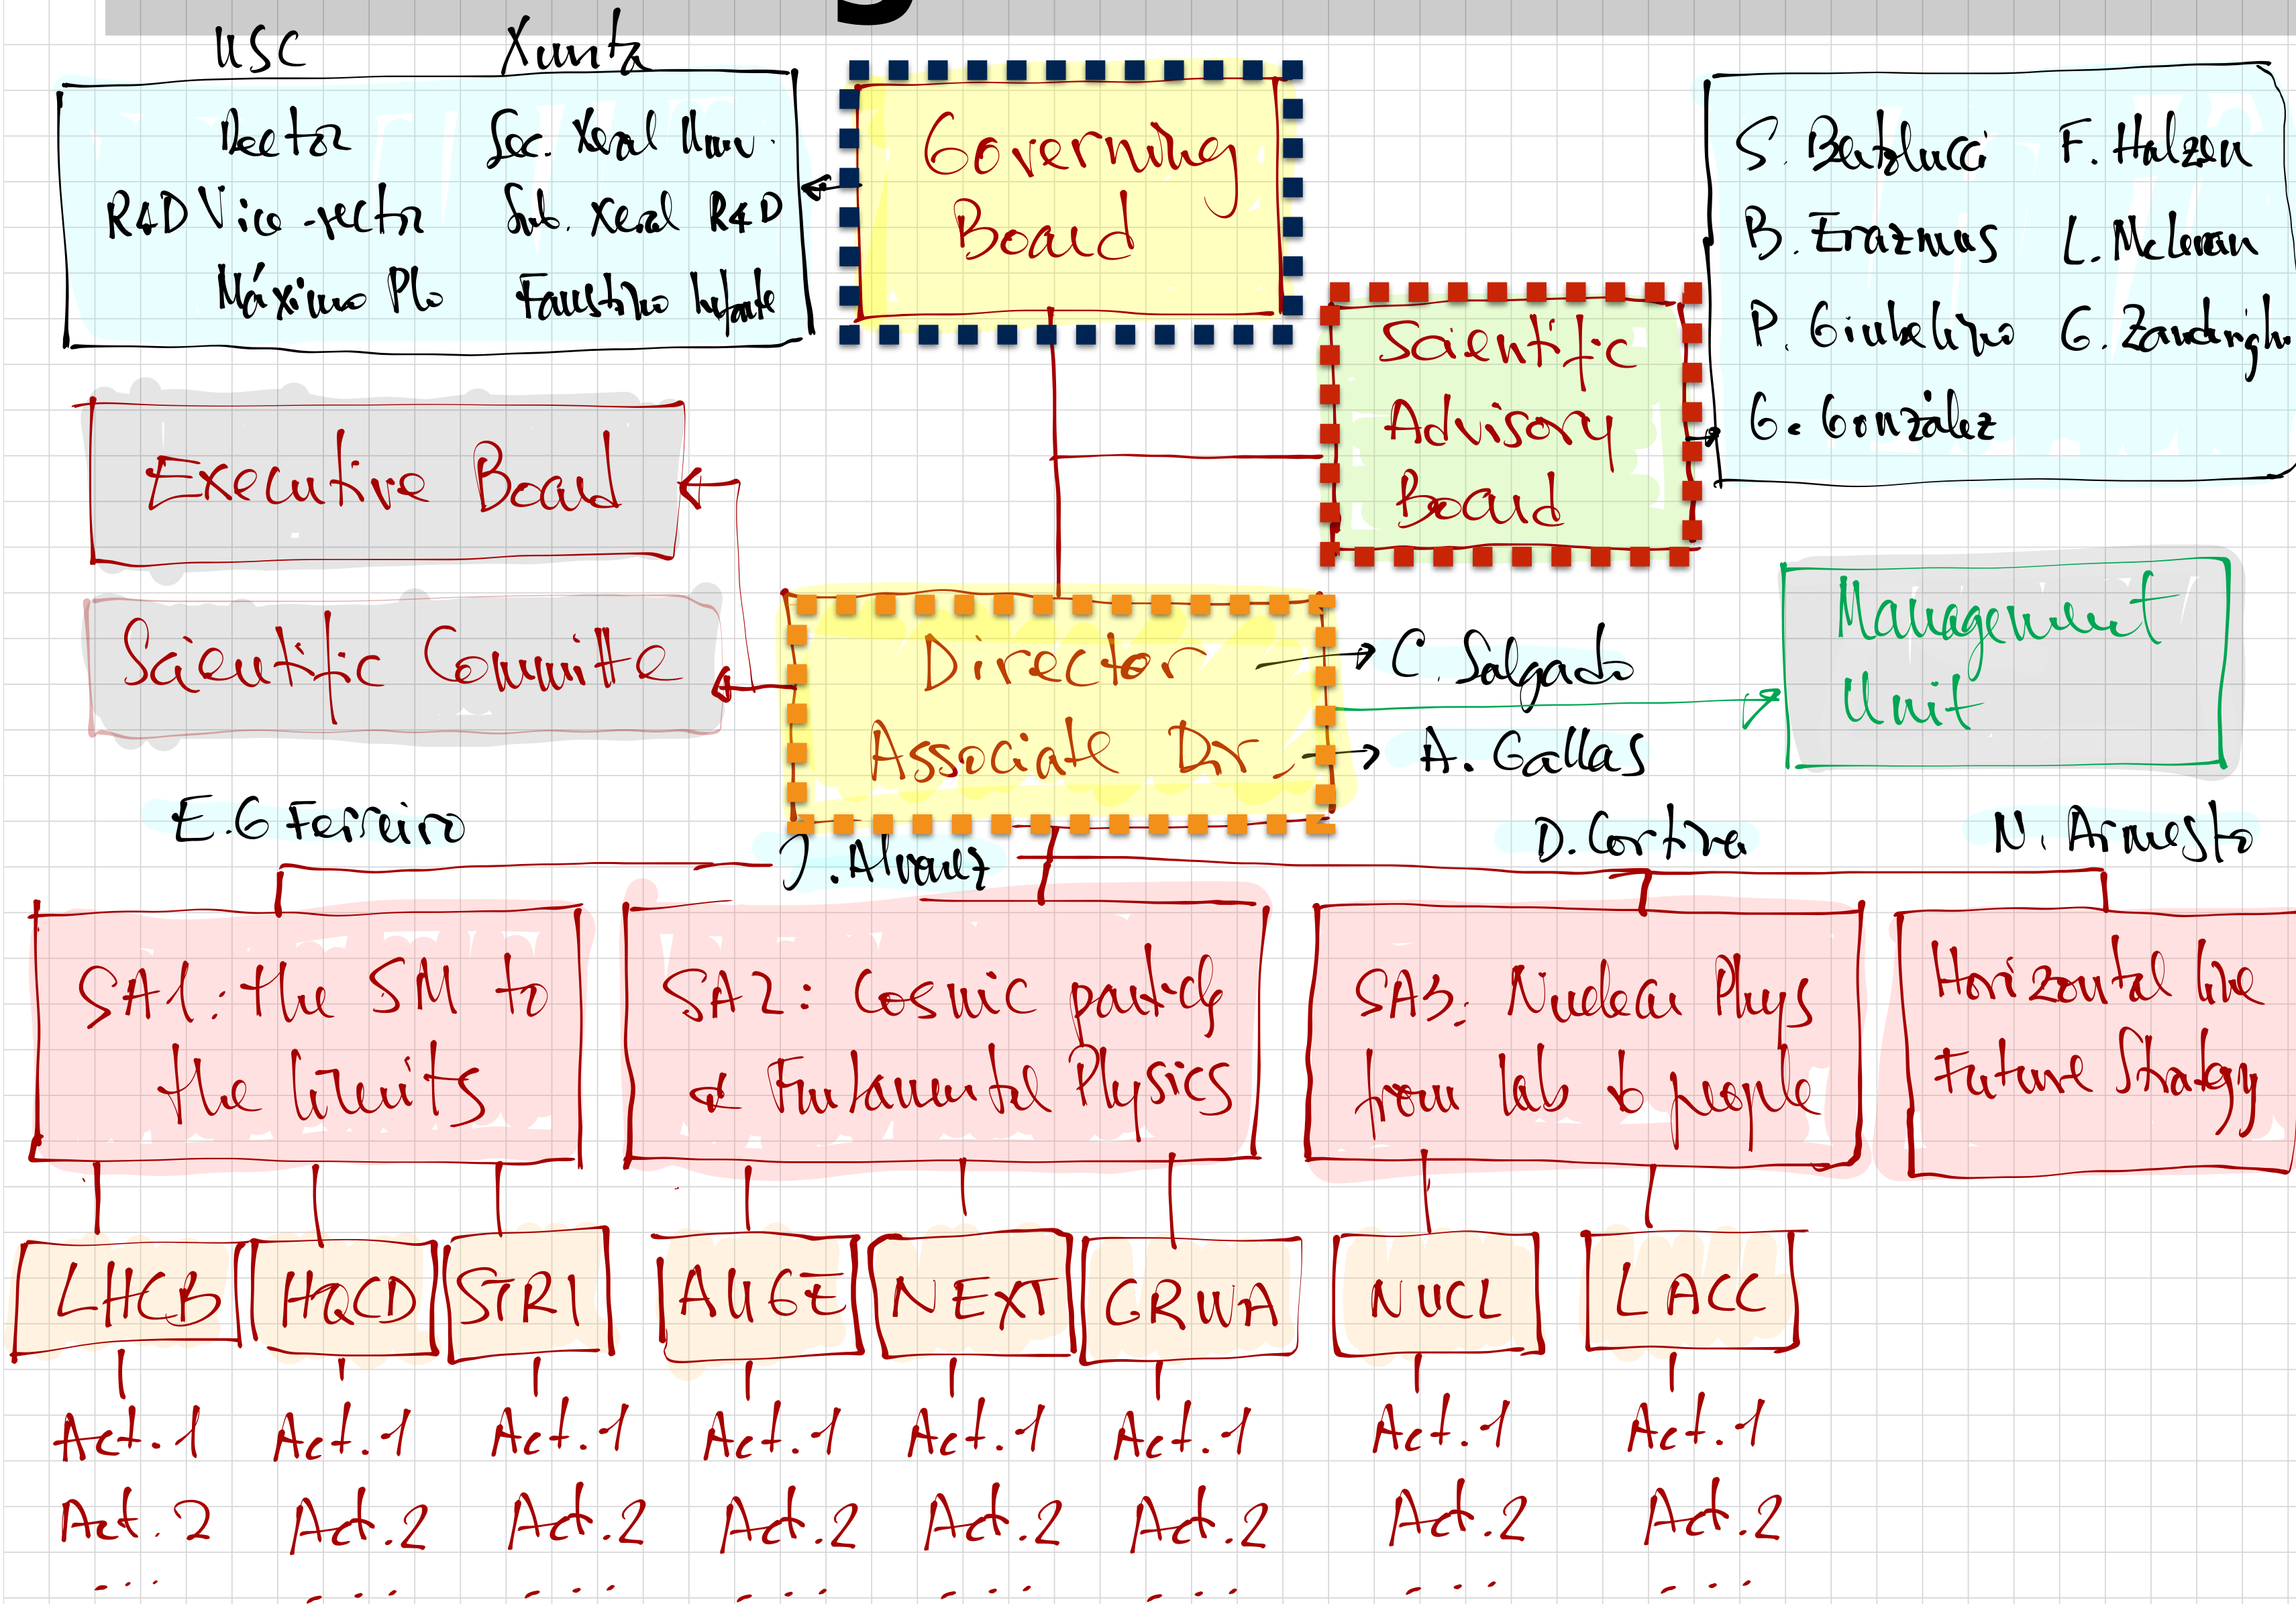 USC Xunta
Rector Sec. Xeral Univ.
R&D Vice-rector Sub. Xeral R&D
Máximo Plo Faustino Infante
Governing
Board
S. Bertolucci F. Halzen
B. Erazmus L. McLerran
P. Giubelino G. Zanderighi
G. González
Scientific
Advisory
Board
Executive Board
Scientific Committe
Director
Associate Dir.
C. Salgado
A. Gallas
Management
Unit
E.G Ferreiro
J. Alvarez
D. Cortina
N. Armesto
SA1: the SM to
the limits
SA2: Cosmic particles
& Fundamental Physics
SA3: Nuclear Phys
from lab to people
Horizontal line
Future Strategy
LHCB HQCD STRI AUGE NEXT GRWA NUCL LACC
Act. 1 Act. 1 Act. 1 Act. 1 Act. 1 Act. 1 Act. 1 Act. 1
Act. 2 Act. 2 Act. 2 Act. 2 Act. 2 Act. 2 Act. 2 Act. 2
... ... ... ... ... ... ... ...